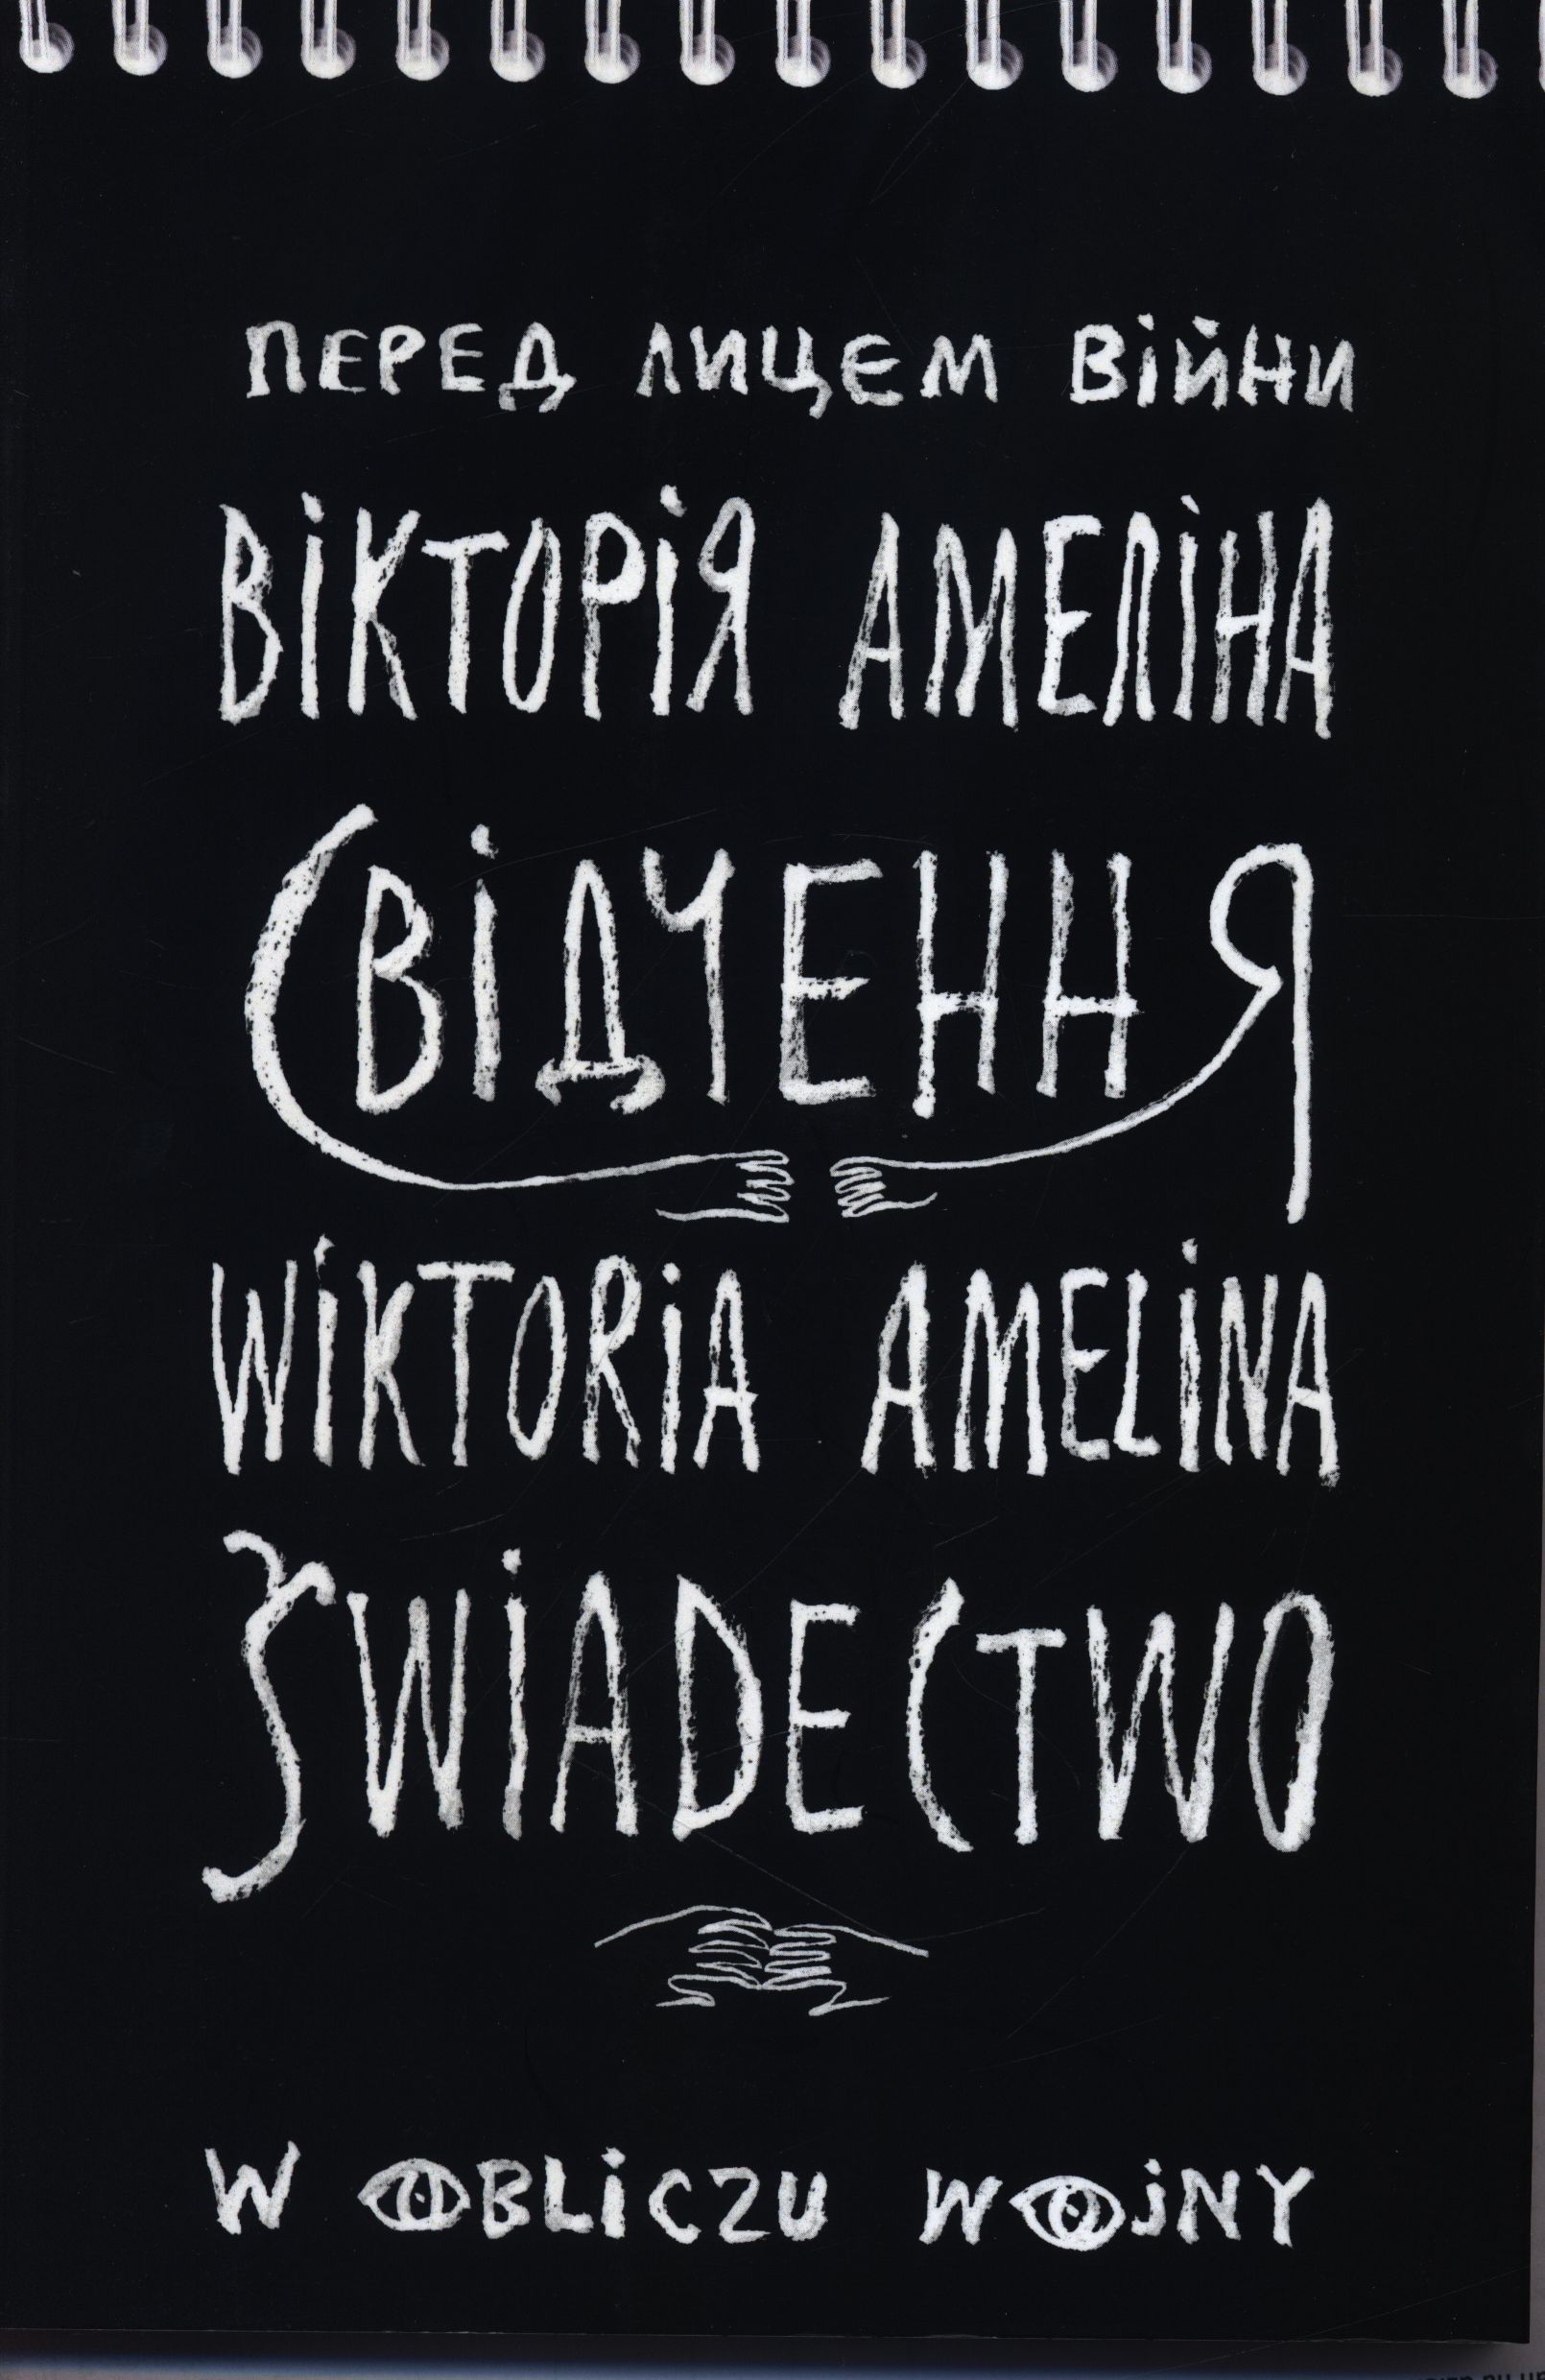 ПЕРЕД ЛИЦЕМ ВІЙНИ
ВІКТОРІЯ АМЕЛІНА
СВІДЧЕННЯ
WIKTORIA AMELINA
ŚWIADECTWO
W OBLICZU WOJNY